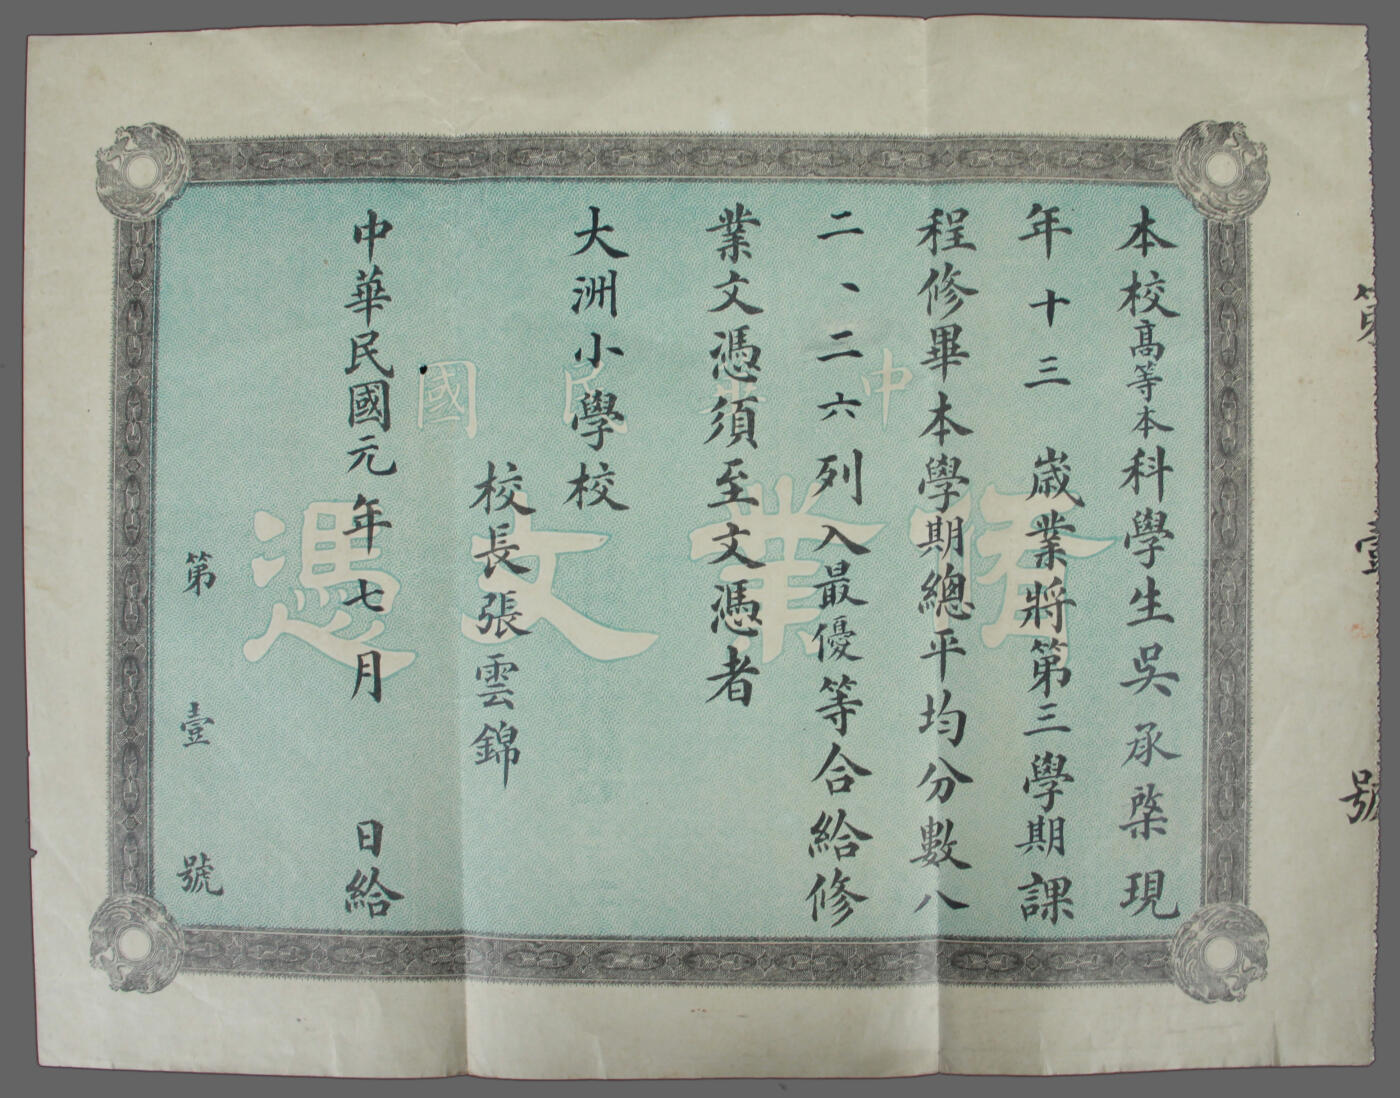 第壹號
本校高等本科學生吳承棨現
年十三 歲業將第三學期課
程修畢本學期總平均分數八
二、二六列入最優等合給修
業文憑須至文憑者
大洲小學校
校長張雲錦
中華民國元年七月 日給
第壹號
中華民國
修業文憑